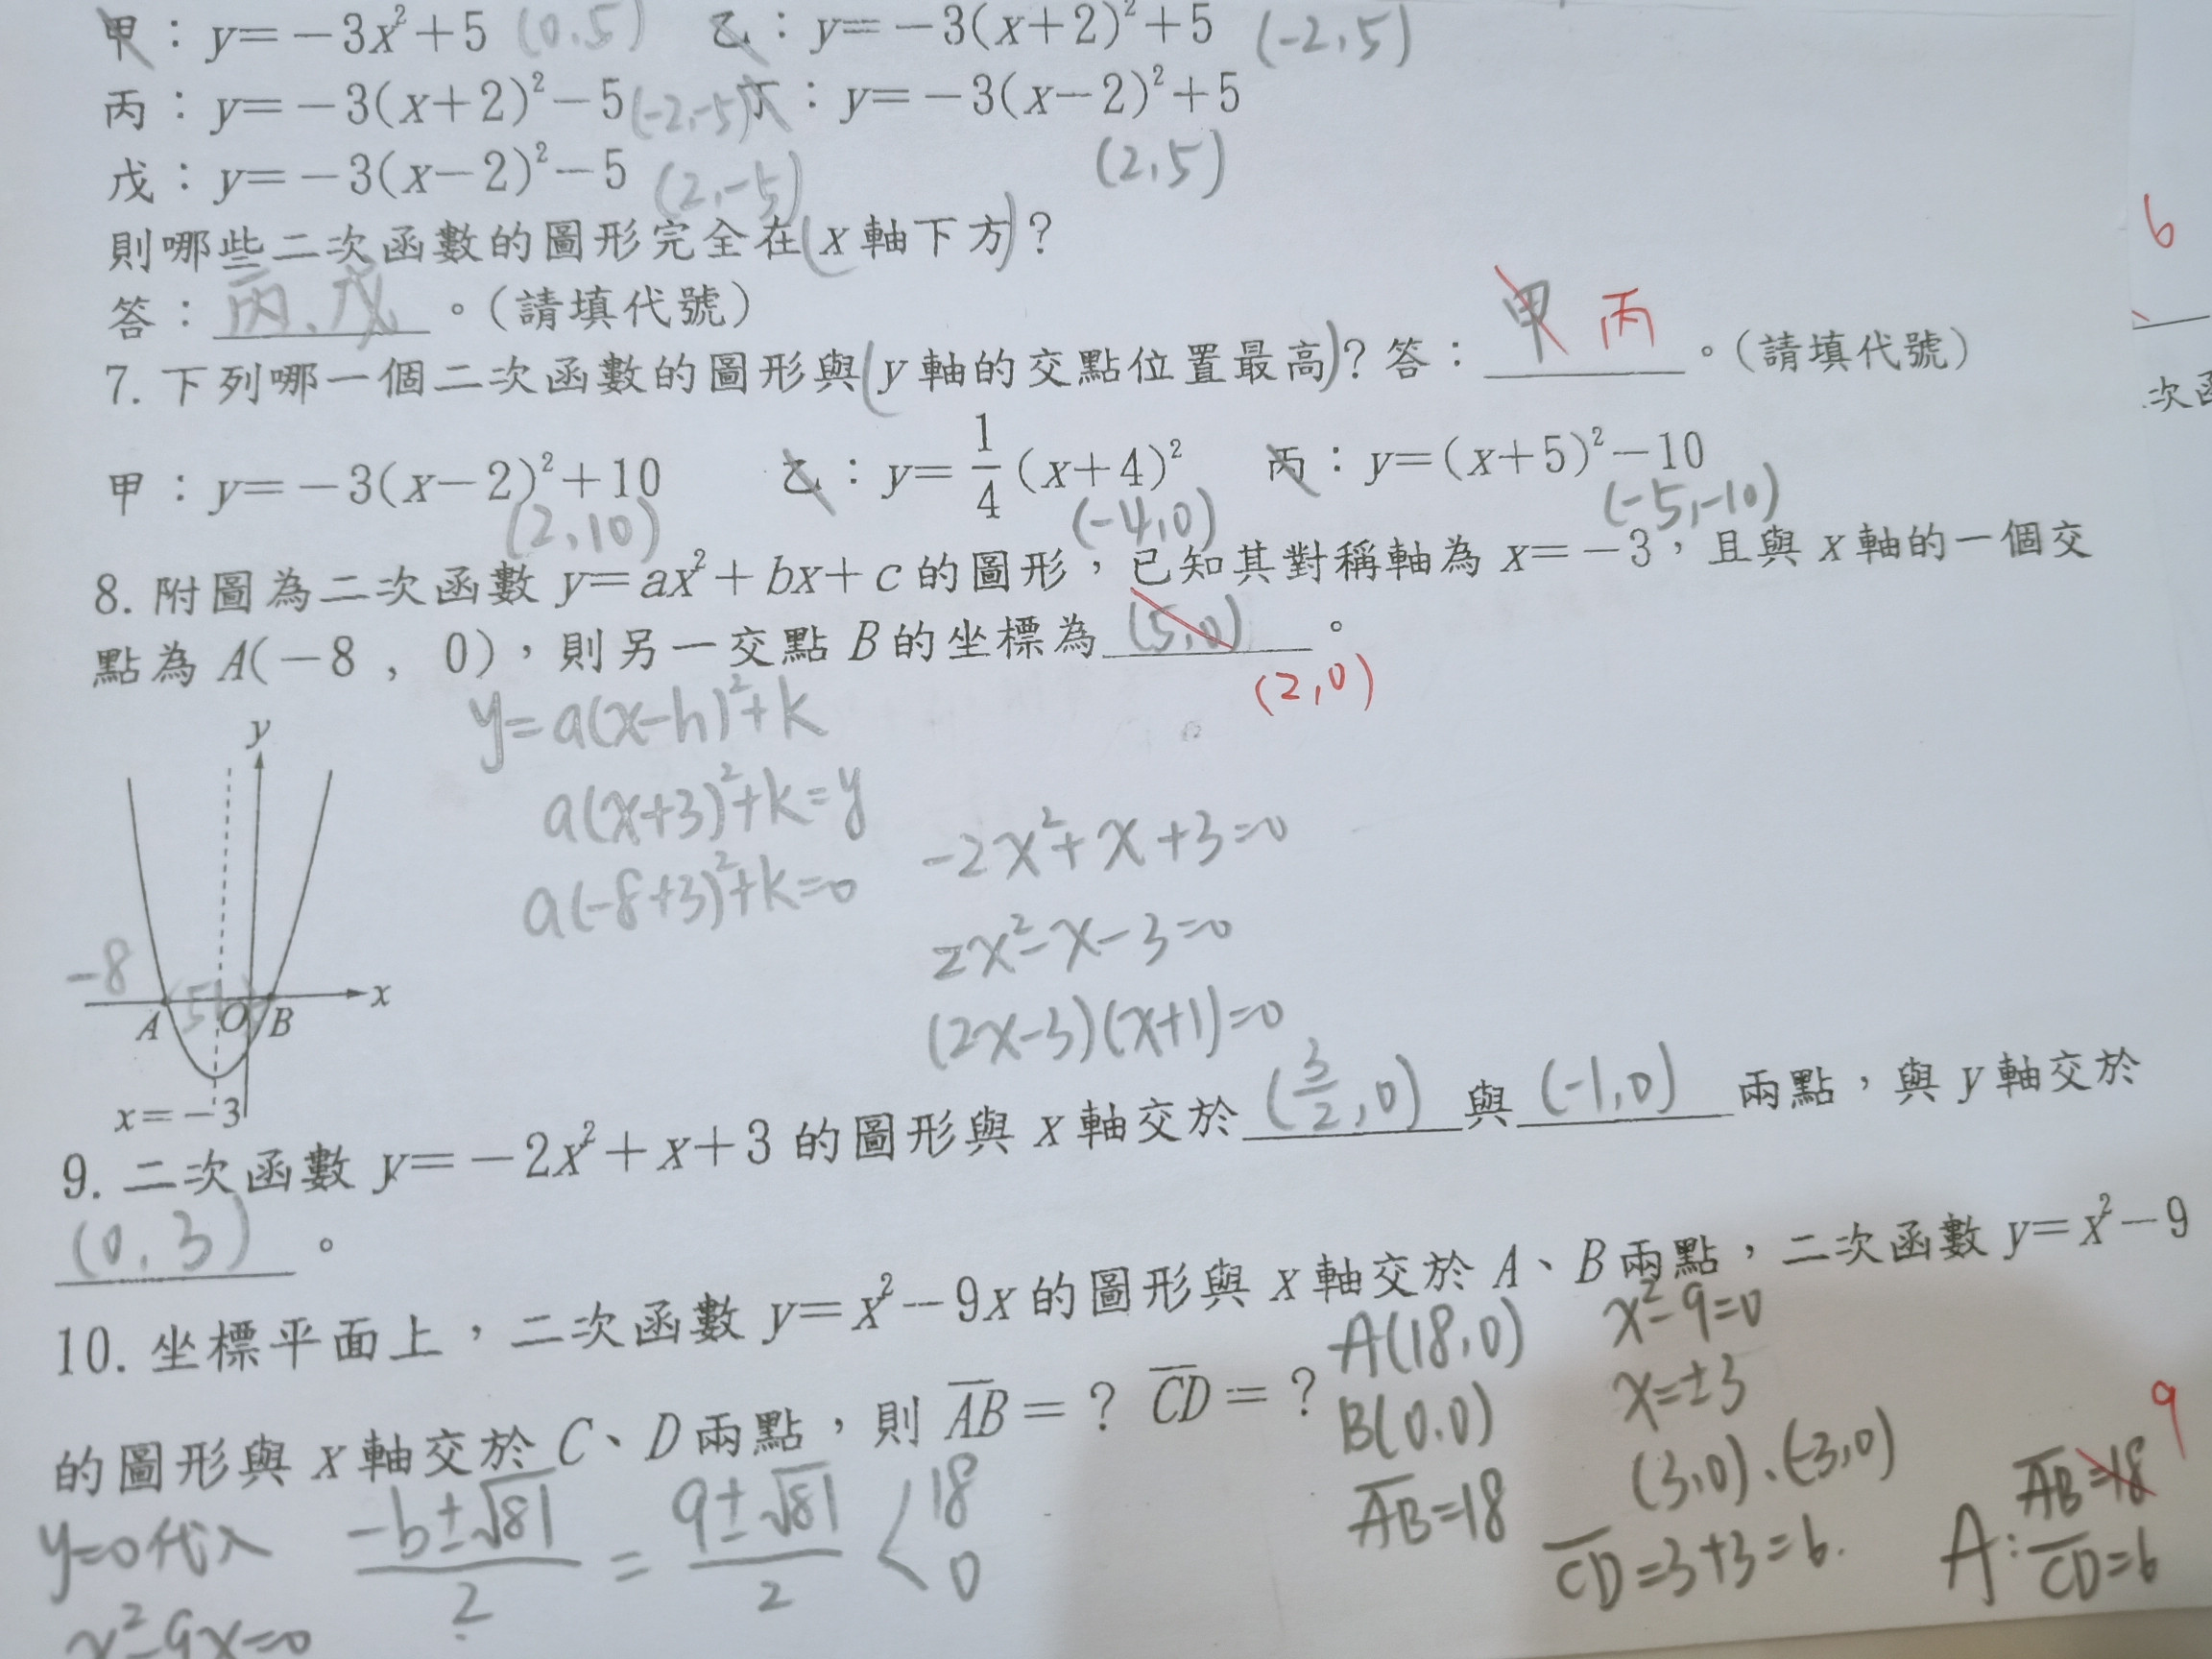 甲：y=-3x²+5 (0,5) 乙：y=-3(x+2)²+5 (-2,5)
丙：y=-3(x+2)²-5 (-2,-5) 丁：y=-3(x-2)²+5
戊：y=-3(x-2)²-5 (2,-5) (2,5)
則哪些二次函數的圖形完全在(x軸下方)？
答：丙、戊。(請填代號)
7. 下列哪一個二次函數的圖形與(y軸的交點位置最高)？答：甲 丙。(請填代號)
甲：y=-3(x-2)²+10 乙：y=1/4(x+4)² 丙：y=(x+5)²-10
(2,10) (-4,0) (-5,-10)
8. 附圖為二次函數 y=ax²+bx+c 的圖形，已知其對稱軸為 x=-3，且與 x 軸的一個交
點為 A(-8 , 0)，則另一交點 B 的坐標為 (5,0)。
(2,0)
y=a(x-h)²+k
a(x+3)²+k=y
a(-8+3)²+k=0
-2x²+x+3=0
2x²-x-3=0
(2x-3)(x+1)=0
y
-8
x
A 5 O B
x=-3
9. 二次函數 y=-2x²+x+3 的圖形與 x 軸交於 (3/2,0) 與 (-1,0) 兩點，與 y 軸交於
(0,3)。
10. 坐標平面上，二次函數 y=x²-9x 的圖形與 x 軸交於 A、B 兩點，二次函數 y=x²-9
的圖形與 x 軸交於 C、D 兩點，則 AB=？ CD=？
y=0代入
x²-9x=0
(-b±√81)/2 = (9±√81)/2 < 18
0
A(18,0)
B(0,0)
AB=18
x²-9=0
x=±3
(3,0)、(-3,0)
CD=3+3=6.
A: AB=18 9
CD=6
6
次函